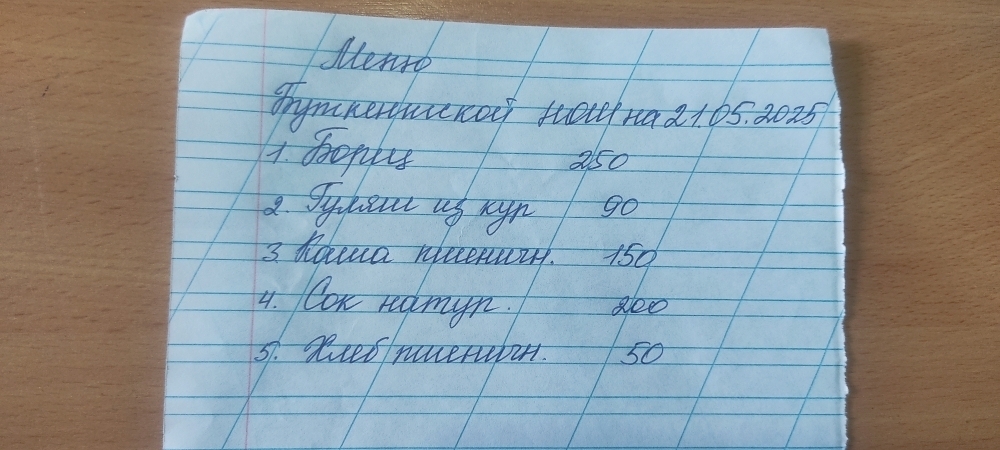 Меню
Буткентской НОШ на 21.05.2025
1. Борщ 250
2. Гуляш из кур 90
3. Каша пшеничн. 150
4. Сок натур. 200
5. Хлеб пшеничн. 50